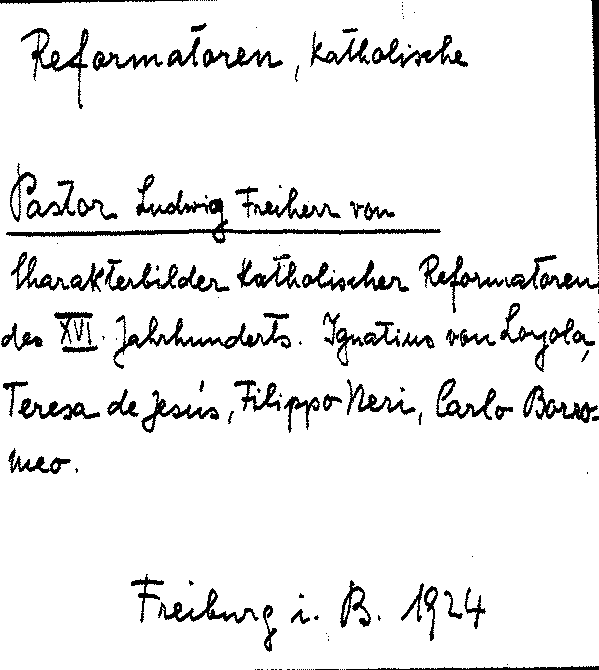 Reformatoren, Katholische
Pastor Ludwig Freiherr von
Charakterbilder Katholischer Reformatoren
des XVI. Jahrhunderts. Ignatius von Loyola,
Teresa de Jesús, Filippo Neri, Carlo Borro-
meo.
Freiburg i. B. 1924